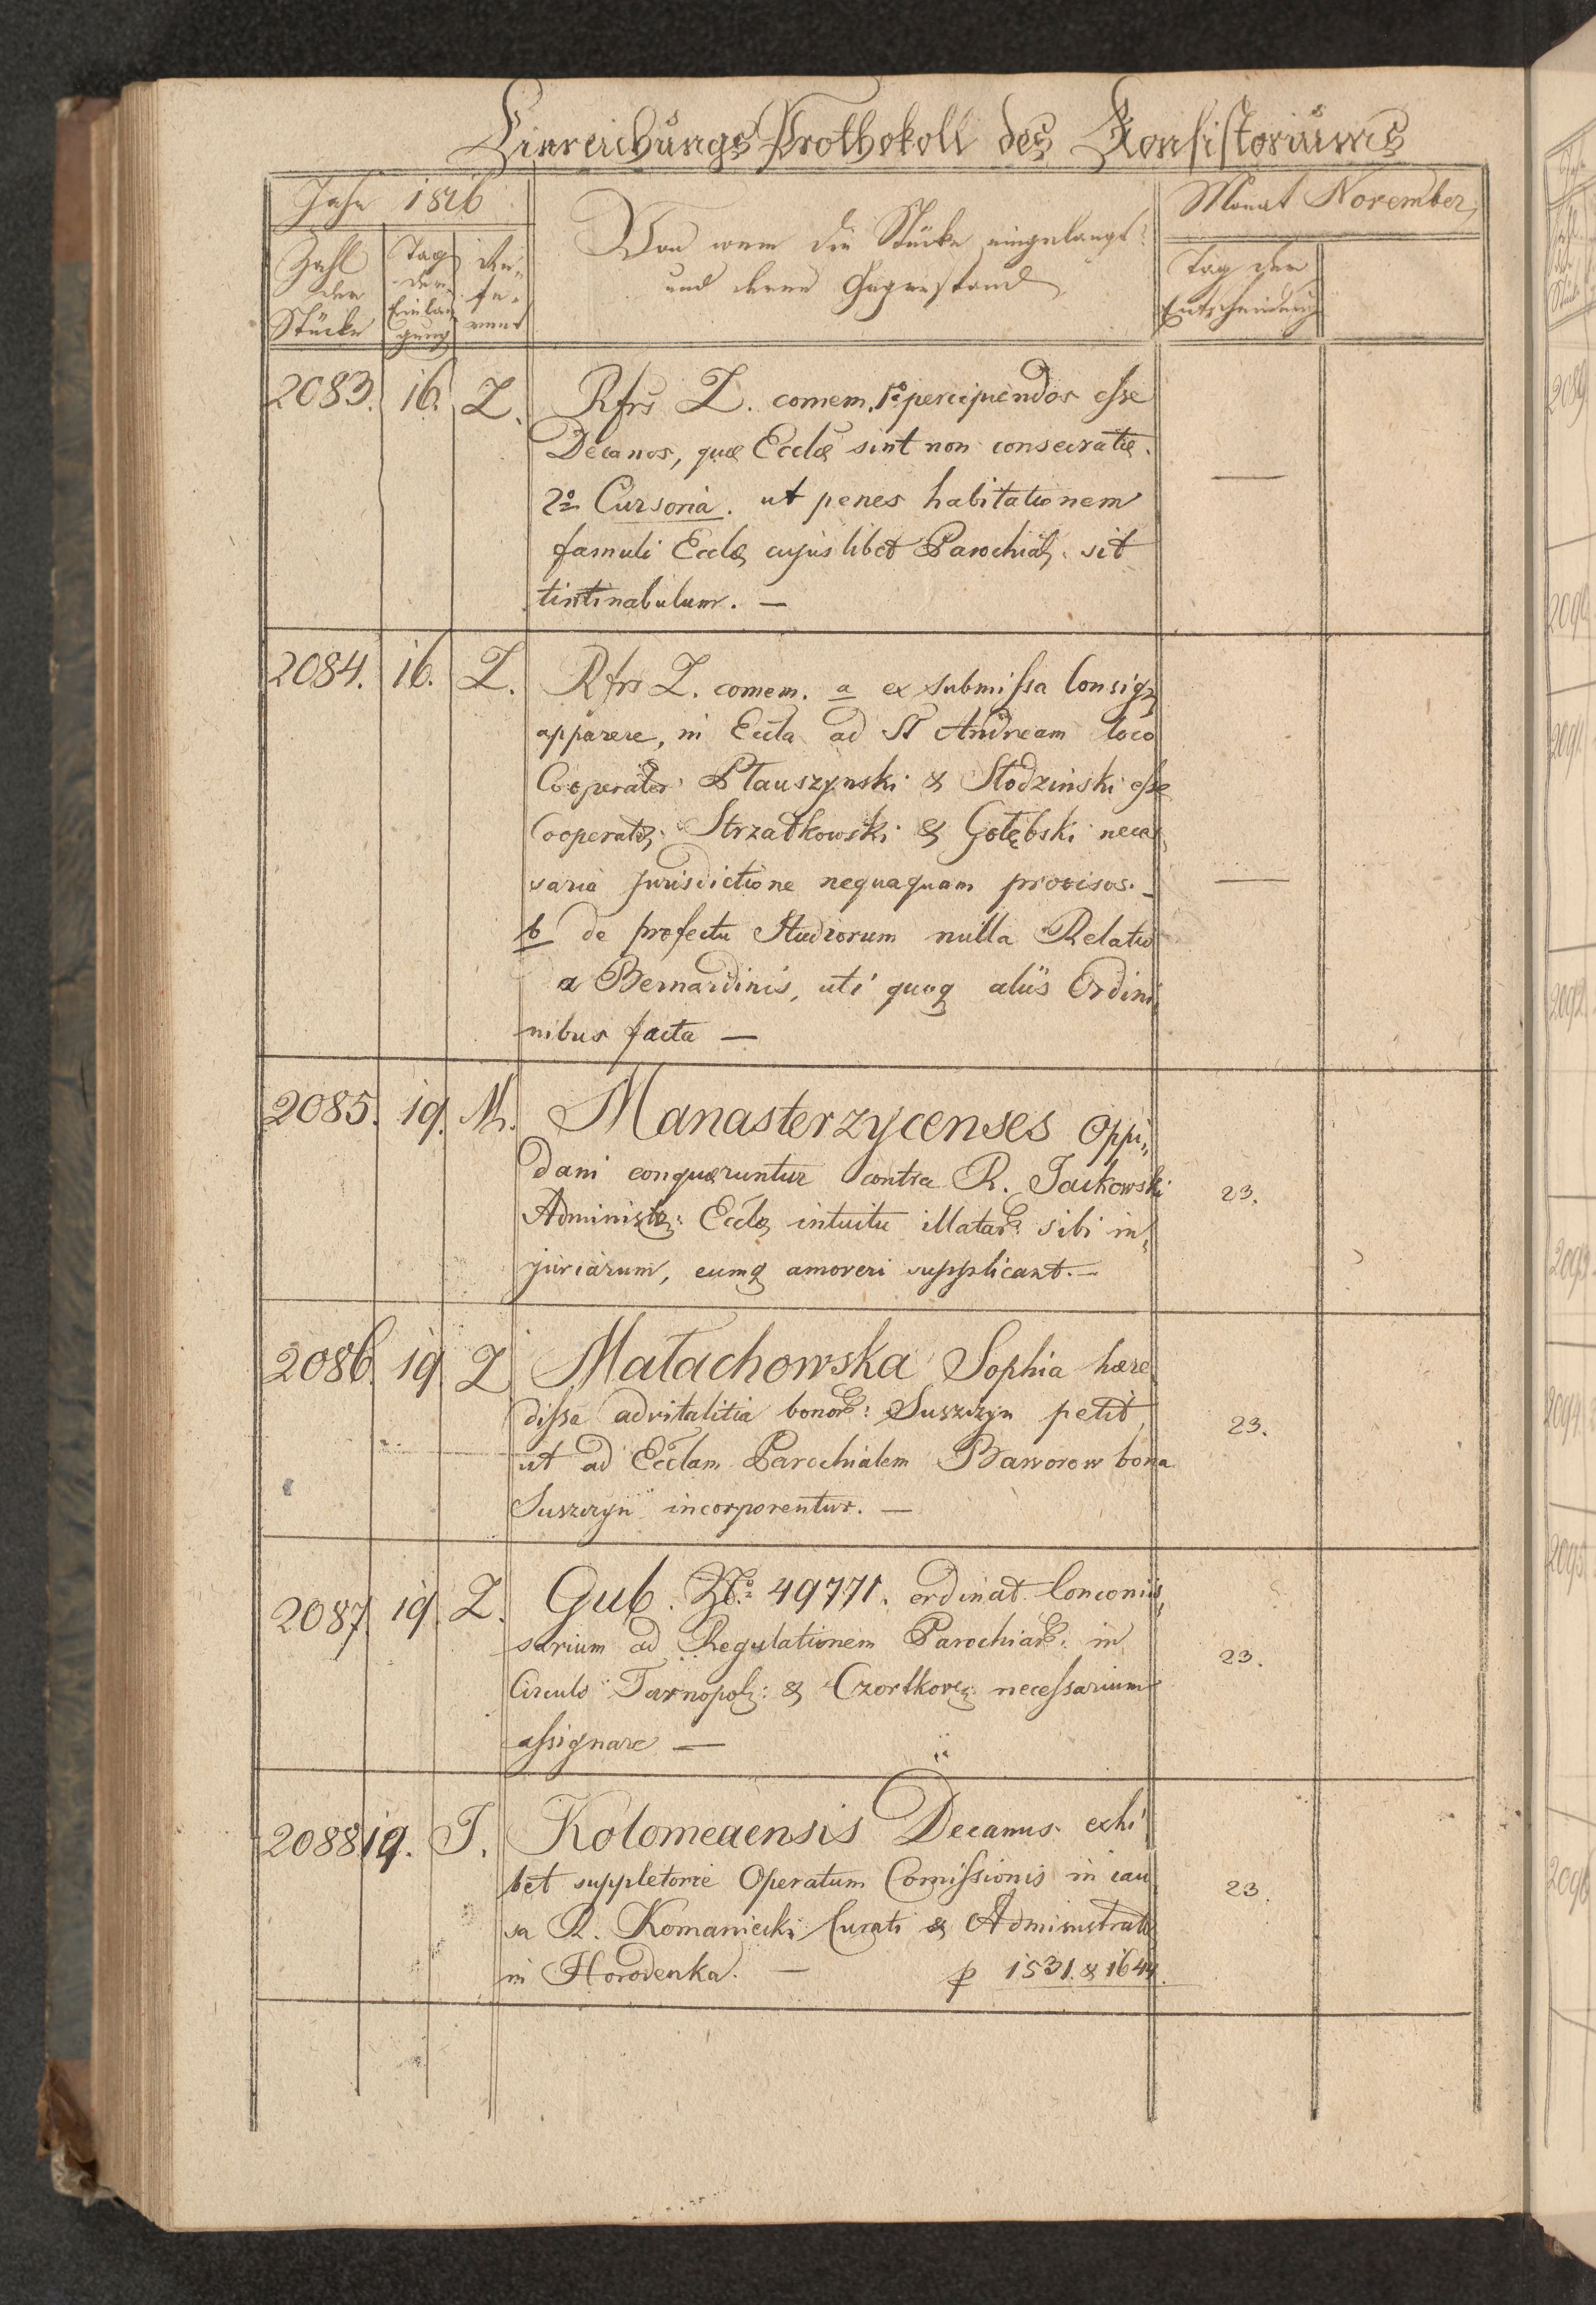 Einreichungs Prothokoll des Konsistoriums
Jahr 1816
Monat November,
Zahl der Stücke
Tag der Einlangung
Referent
Von wem die Stücke eingelangt
und deren Gegenstand
Tag der Entscheidung
2083. 16. Z. Rfrs Z. comem. 1o percipiendos esse
Decanos, quæ Ecclæ sint non consecratæ.
2o Cursoria. ut penes habitationem
famuli Ecclæ cujuslibet Parochial. sit
tintinabulum. —
2084. 16. Z. Rfrs Z. comem. a ex submissa Consig.
apparere, in Eccla ad St Andream loco
Cooperator: Ptauszynski & Stodzinski esse
Cooperator: Strzałkowski & Gołębski neces
saria jurisdictione nequaquam provisos. —
b de profectu Studiorum nulla Relatio
a Bernardinis, uti quoq aliis Ordini
nibus facta —
2085. 19. M. Manasterzycenses Oppi„
dani conquæruntur contra R. Jackowski
Administr: Ecclæ intuitu illatar: sibi in„
juriarum, eumq amoveri supplicant. —
23.
2086. 19. Z Małachowska Sophia hære
dissa advitalitia bonor: Suszczyn petit,
ut ad Ecclam Parochialem Baworow bona
Suszczyn incorporentur. —
23.
2087. 19. Z. Gub. No. 49771. ordinat Concomis„
sarium ad Regulationem Parochiar: in
Circulo Tarnopol: & Czortkov: necessarium
assignare —
23.
2088 19. J. Kołomeaensis Decanus exhi
bet suppletorie Operatum Comissionis in cau
sa R. Komaniecki Curati & Administrat
in Horodenka. — p 1531. & 1644.
23.